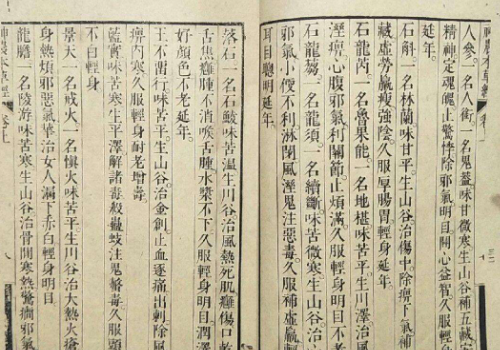 人參。一名人銜一名鬼蓋味甘微寒生山谷補五藏
精神定魂魄止驚悸除邪氣明目開心益智。久服輕
延年。
石斛一名林蘭味甘平。生山谷治傷中。除痹下氣補
藏虛勞羸瘦強陰久服厚腸胃輕身延年。
石龍芮。一名魯果能。一名地椹味苦平。生川澤治風
溼痹心腹邪氣利關節止煩滿。久服輕身明目不老
石龍芻。一名龍須。一名續斷味苦微寒生山谷治
邪氣小便不利淋閉風溼鬼注惡毒。久服補虛羸輕
耳目聰明延年。
落石一名石鯪味苦溫生川谷治風熱死肌癰傷口乾
舌焦癰腫不消喉舌腫水漿不下久服輕身明目潤澤
好顏色不老延年。
王不畱行味苦平生山谷治金創止血逐痛出刺除風
痹內寒久服輕身耐老增壽。
藍實味苦寒生平澤解諸毒殺蠱蚑注鬼螫毒久服頭
不白輕身
景天一名戒火一名慎火味苦平生川谷治大熱火瘡
身熱煩邪惡氣華治女人漏下赤白輕身明目
龍膽一名陵游味苦寒生山谷治骨間寒熱驚癇邪氣
神農本草經